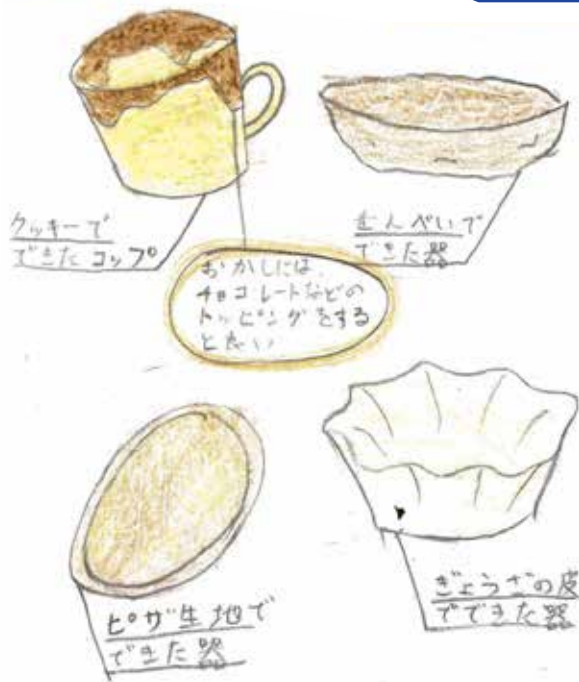 クッキーで
できたコップ
せんべいで
できた器
おかしには、
チョコレートなどの
トッピングをする
と良い
ピザ生地で
できた器
ぎょうざの皮
でできた器